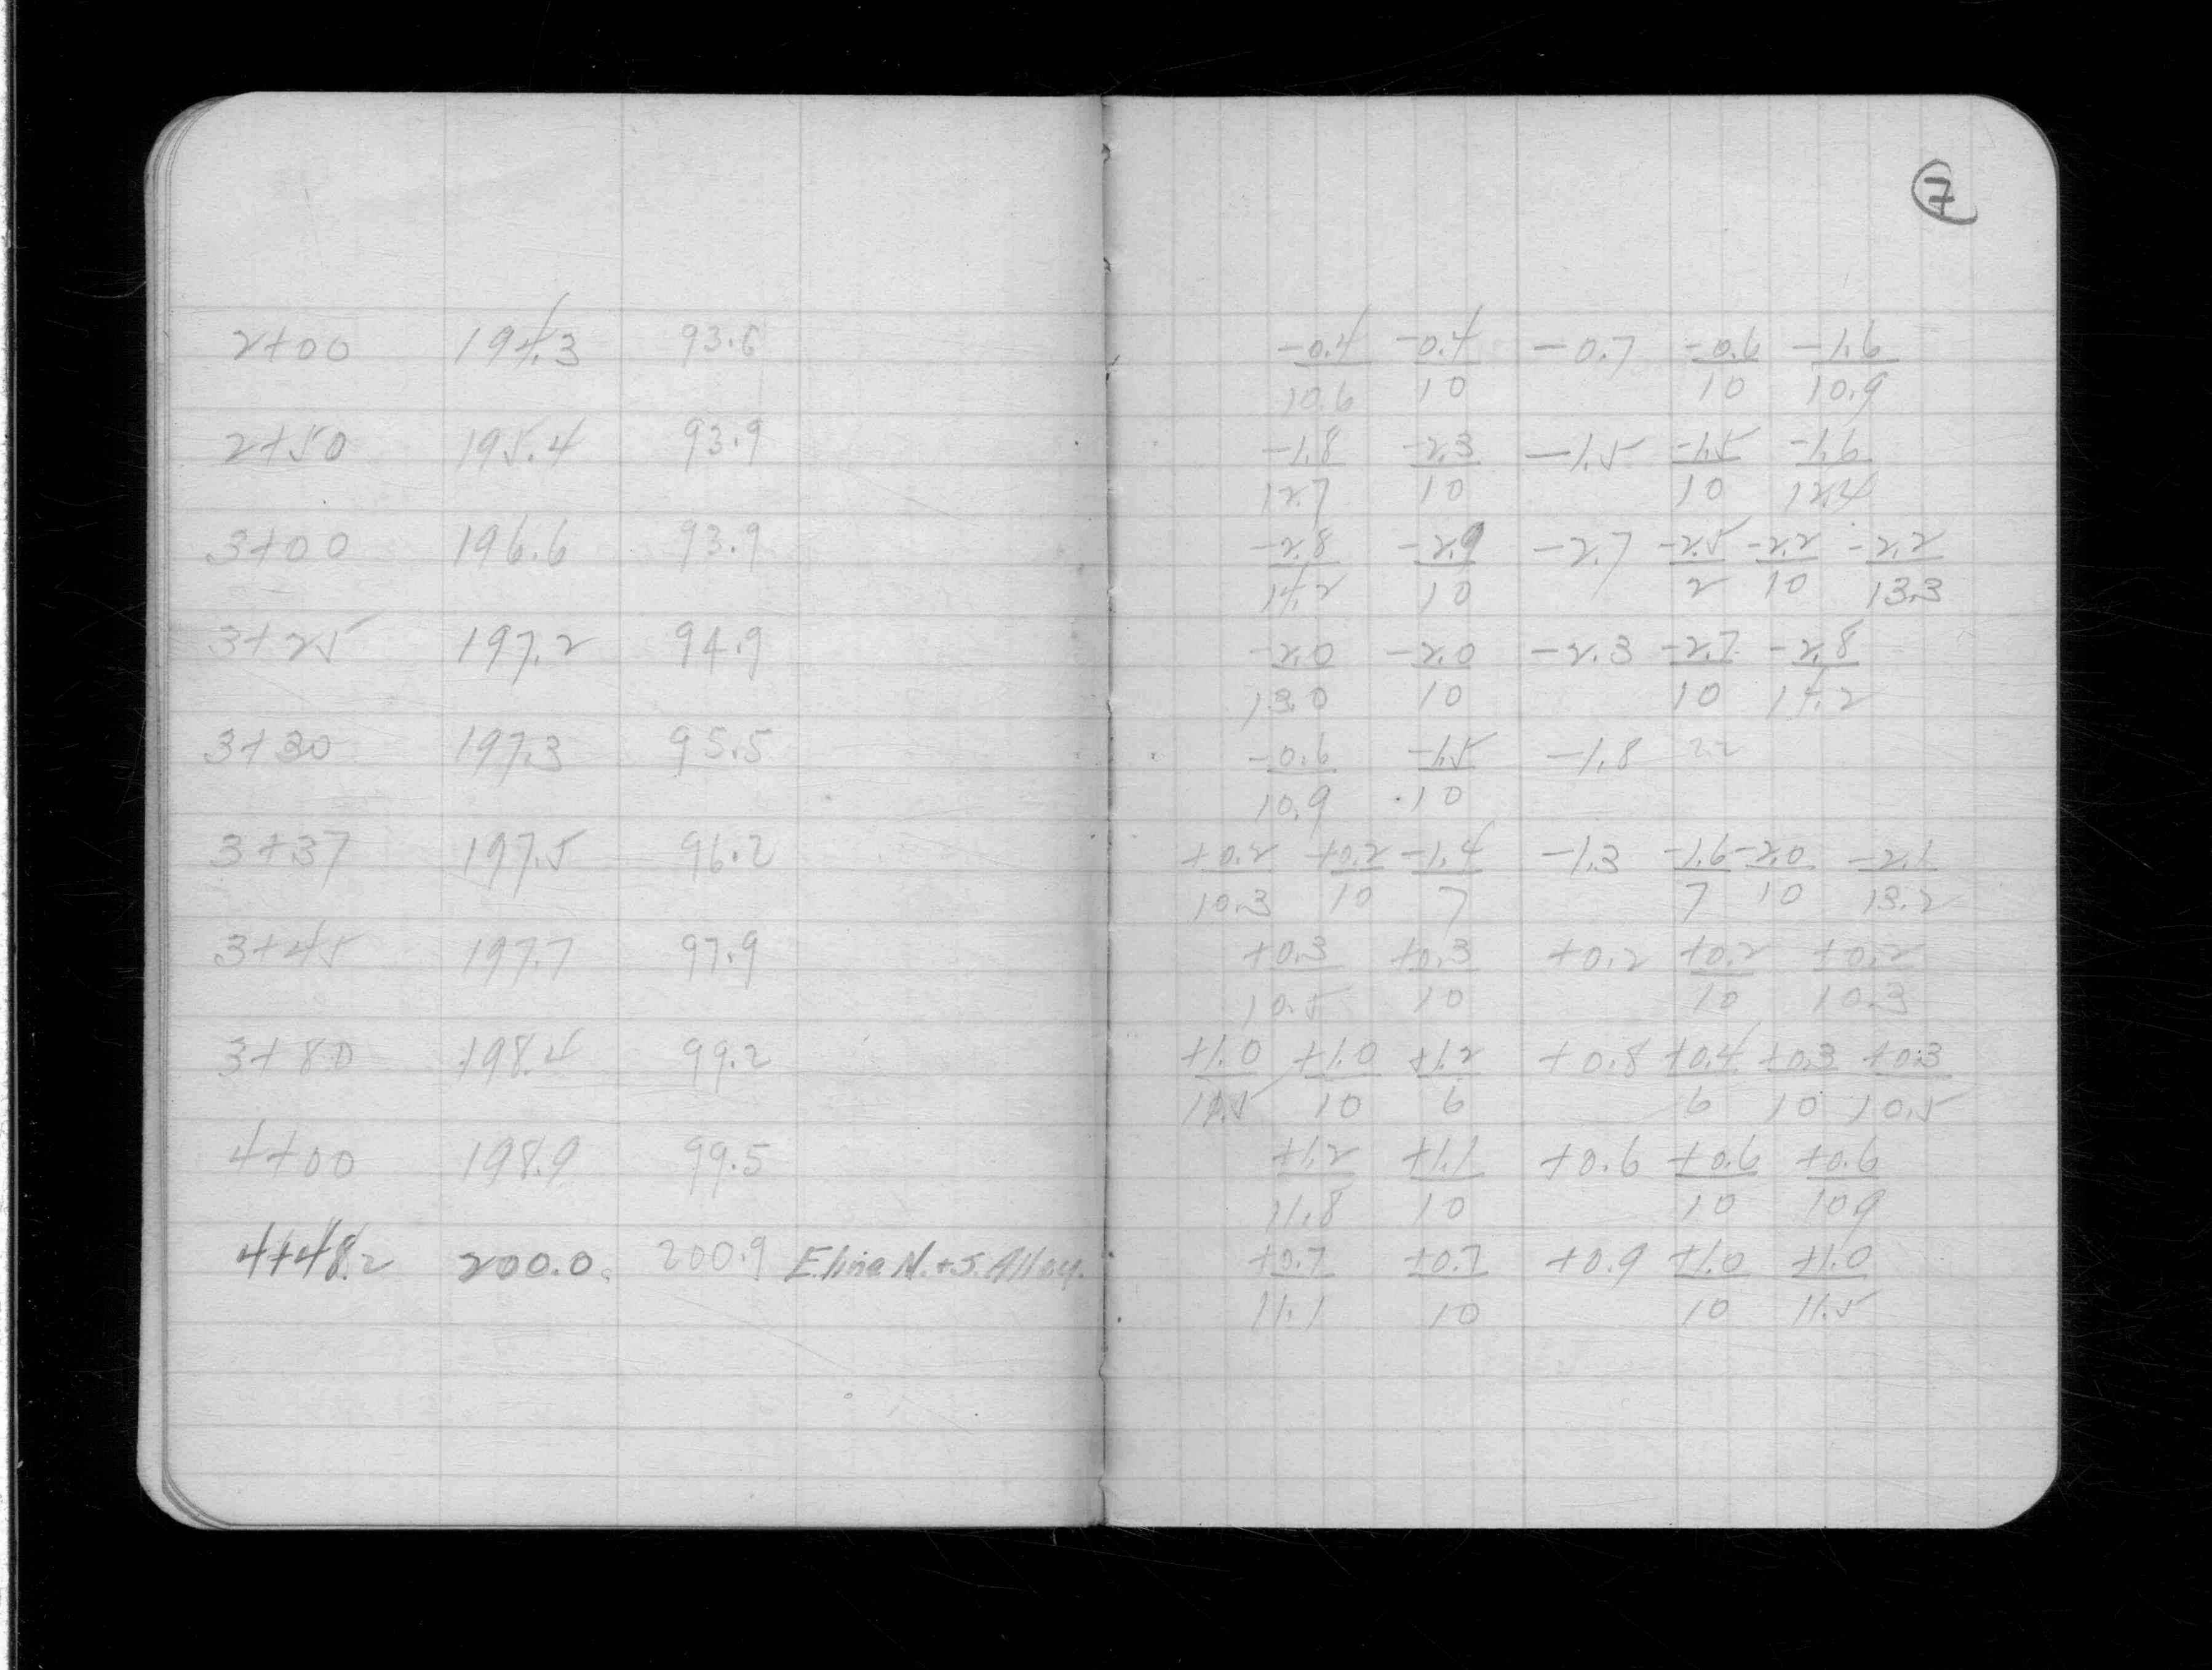 7
2+00 194.3 93.6 -0.4 -0.4 -0.7 -0.6 -1.6
10.6 10 10 10.9
2+50 195.4 93.9 -1.8 -2.3 -1.5 -1.5 -1.6
12.7 10 10 12.4
3+00 196.6 93.9 -2.8 -2.9 -2.7 -2.5 -2.2 -2.2
14.2 10 2 10 13.3
3+25 197.2 94.9 -2.0 -2.0 -2.3 -2.7 -2.8
13.0 10 10 14.2
3+30 197.3 95.5 -0.6 -1.5 -1.8 2.2
10.9 10
3+37 197.5 96.2 +0.2 +0.2 -1.4 -1.3 -1.6 -2.0 -2.1
10.3 10 7 7 10 13.2
3+45 197.7 97.9 +0.3 +0.3 +0.2 +0.2 +0.2
10.5 10 10 10.3
3+80 198.4 99.2 +1.0 +1.0 +1.2 +0.8 +0.4 +0.3 +0.3
11.5 10 6 6 10 10.5
4+00 198.9 99.5 +1.2 +1.1 +0.6 +0.6 +0.6
11.8 10 10 10.9
4+48.2 200.0 200.9 E. line N. + S. Alley. +0.7 +0.7 +0.9 +1.0 +1.0
11.1 10 10 11.5